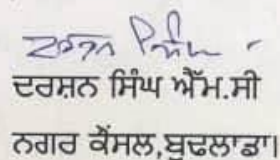 ਦਰਸ਼ਨ ਸਿੰਘ ਐੱਮ.ਸੀ
ਨਗਰ ਕੌਂਸਲ,ਬੁਢਲਾਡਾ